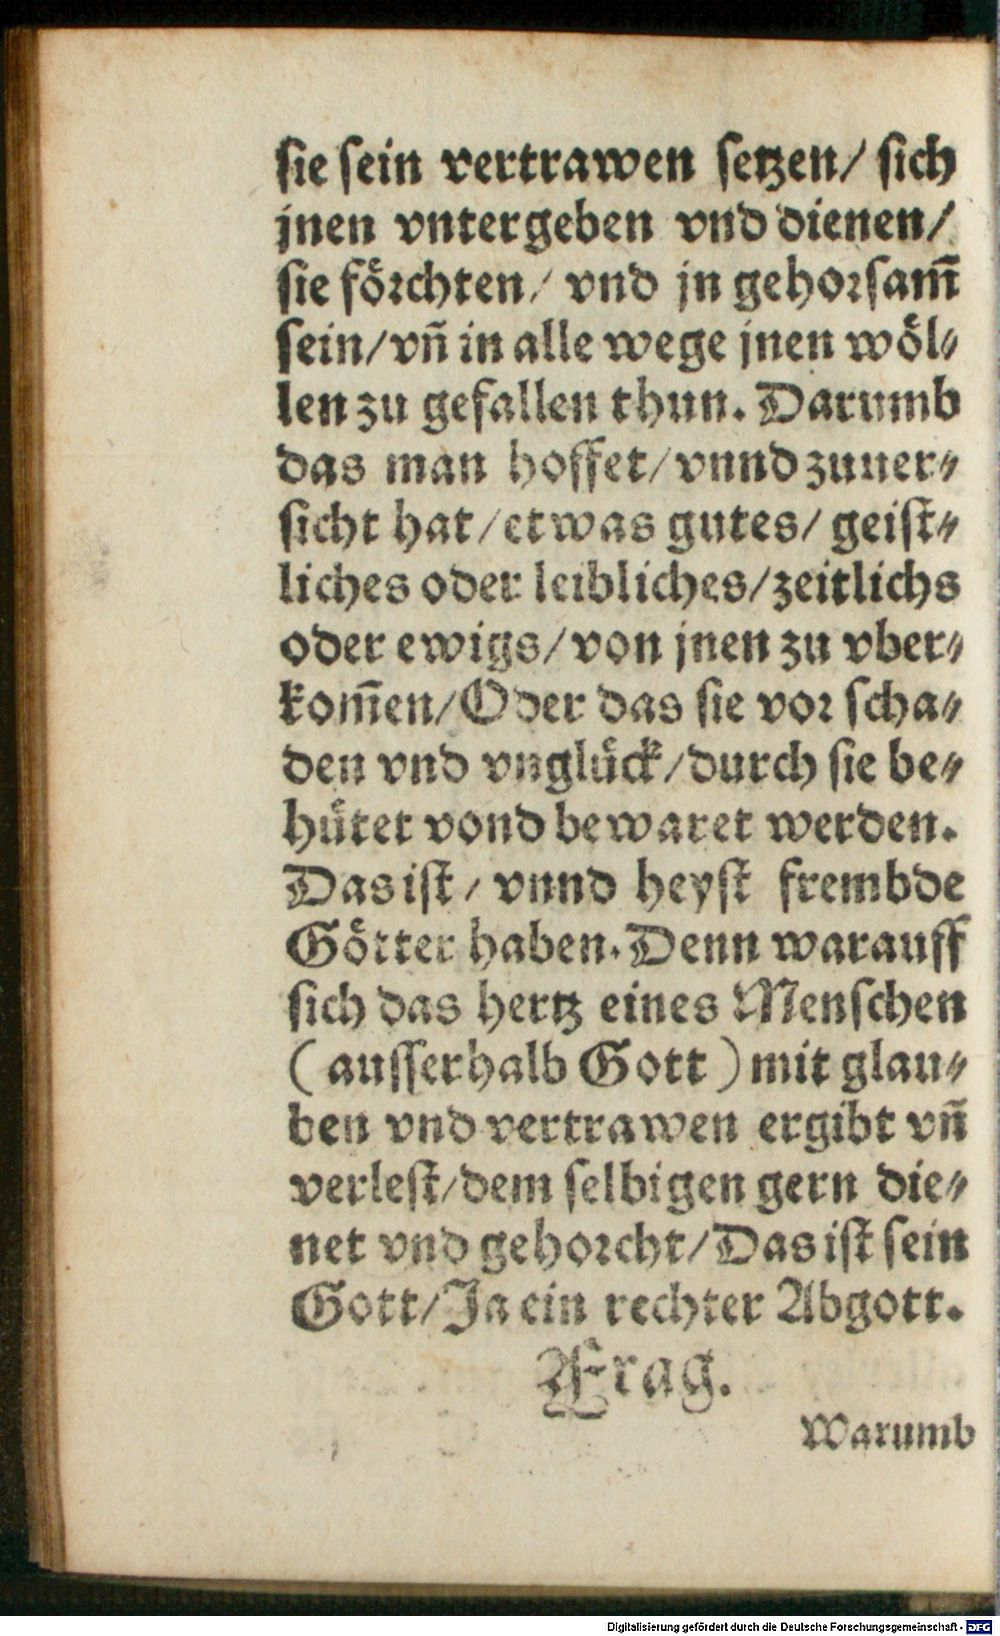 sie sein vertrawen setzen/ sich
jnen vntergeben vnd dienen/
sie förchten/ vnd jn gehorsam̄
sein/ vn̄ in alle wege jnen wöl⸗
len zu gefallen thun. Darumb
das man hoffet/ vnnd zuuer⸗
sicht hat/ etwas gutes/ geist⸗
liches oder leibliches/ zeitlichs
oder ewigs/ von jnen zu vber⸗
kom̄en/ Oder das sie vor scha⸗
den vnd vnglück/ durch sie be⸗
hütet vond bewaret werden.
Das ist/ vnnd heyst frembde
Götter haben. Denn warauff
sich das hertz eines Menschen
(ausserhalb Gott) mit glau⸗
ben vnd vertrawen ergibt vn̄
verlest/ dem selbigen gern die⸗
net vnd gehorcht/ Das ist sein
Gott/ Ja ein rechter Abgott.
Frag.
Warumb
Digitalisierung gefördert durch die Deutsche Forschungsgemeinschaft - DFG